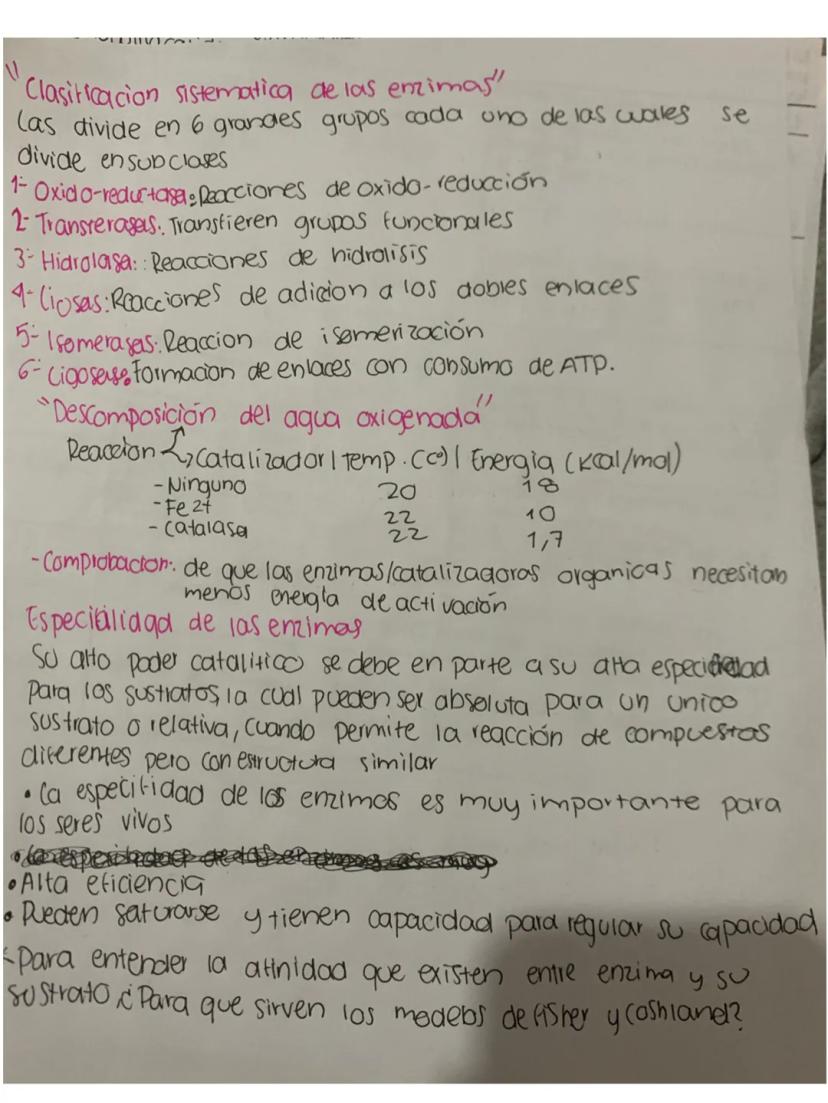 "Clasificacion sistematica de las enzimas"
Las divide en 6 grandes grupos cada uno de las cuales se
divide en subclases
1- Oxido-reductasa: Reacciones de oxido-reducción
2- Transferasas. Transfieren grupos funcionales
3- Hidrolasa: Reacciones de hidrolisis
4- Liosas: Reacciones de adicion a los dobles enlaces
5- Isomerasas. Reaccion de isomerización
6- Ligosas. Formacion de enlaces con consumo de ATP.
"Descomposición del agua oxigenada"
Reaccion Catalizador | Temp. (C°) | Energia (Kcal/mol)
- Ninguno 20 18
- Fe 2+ 22 10
- Catalasa 22 1,7
- Comprobacion: de que las enzimas/catalizadoras organicas necesitan
menos energia de activación
Especifilidad de las enzimas
Su alto poder catalitico se debe en parte a su alta
para los sustratos, la cual pueden ser absoluta para un unico
sustrato o relativa, cuando permite la reacción de compuestos
diferentes pero con estructura similar
• La especifidad de las enzimas es muy importante para
los seres vivos
• Alta eficiencia
• Pueden saturarse y tienen capacidad para regular su capacidad
- Para entender la afinidad que existen entre enzima y su
sustrato ¿Para que sirven los modelos de Fisher y Coshland?